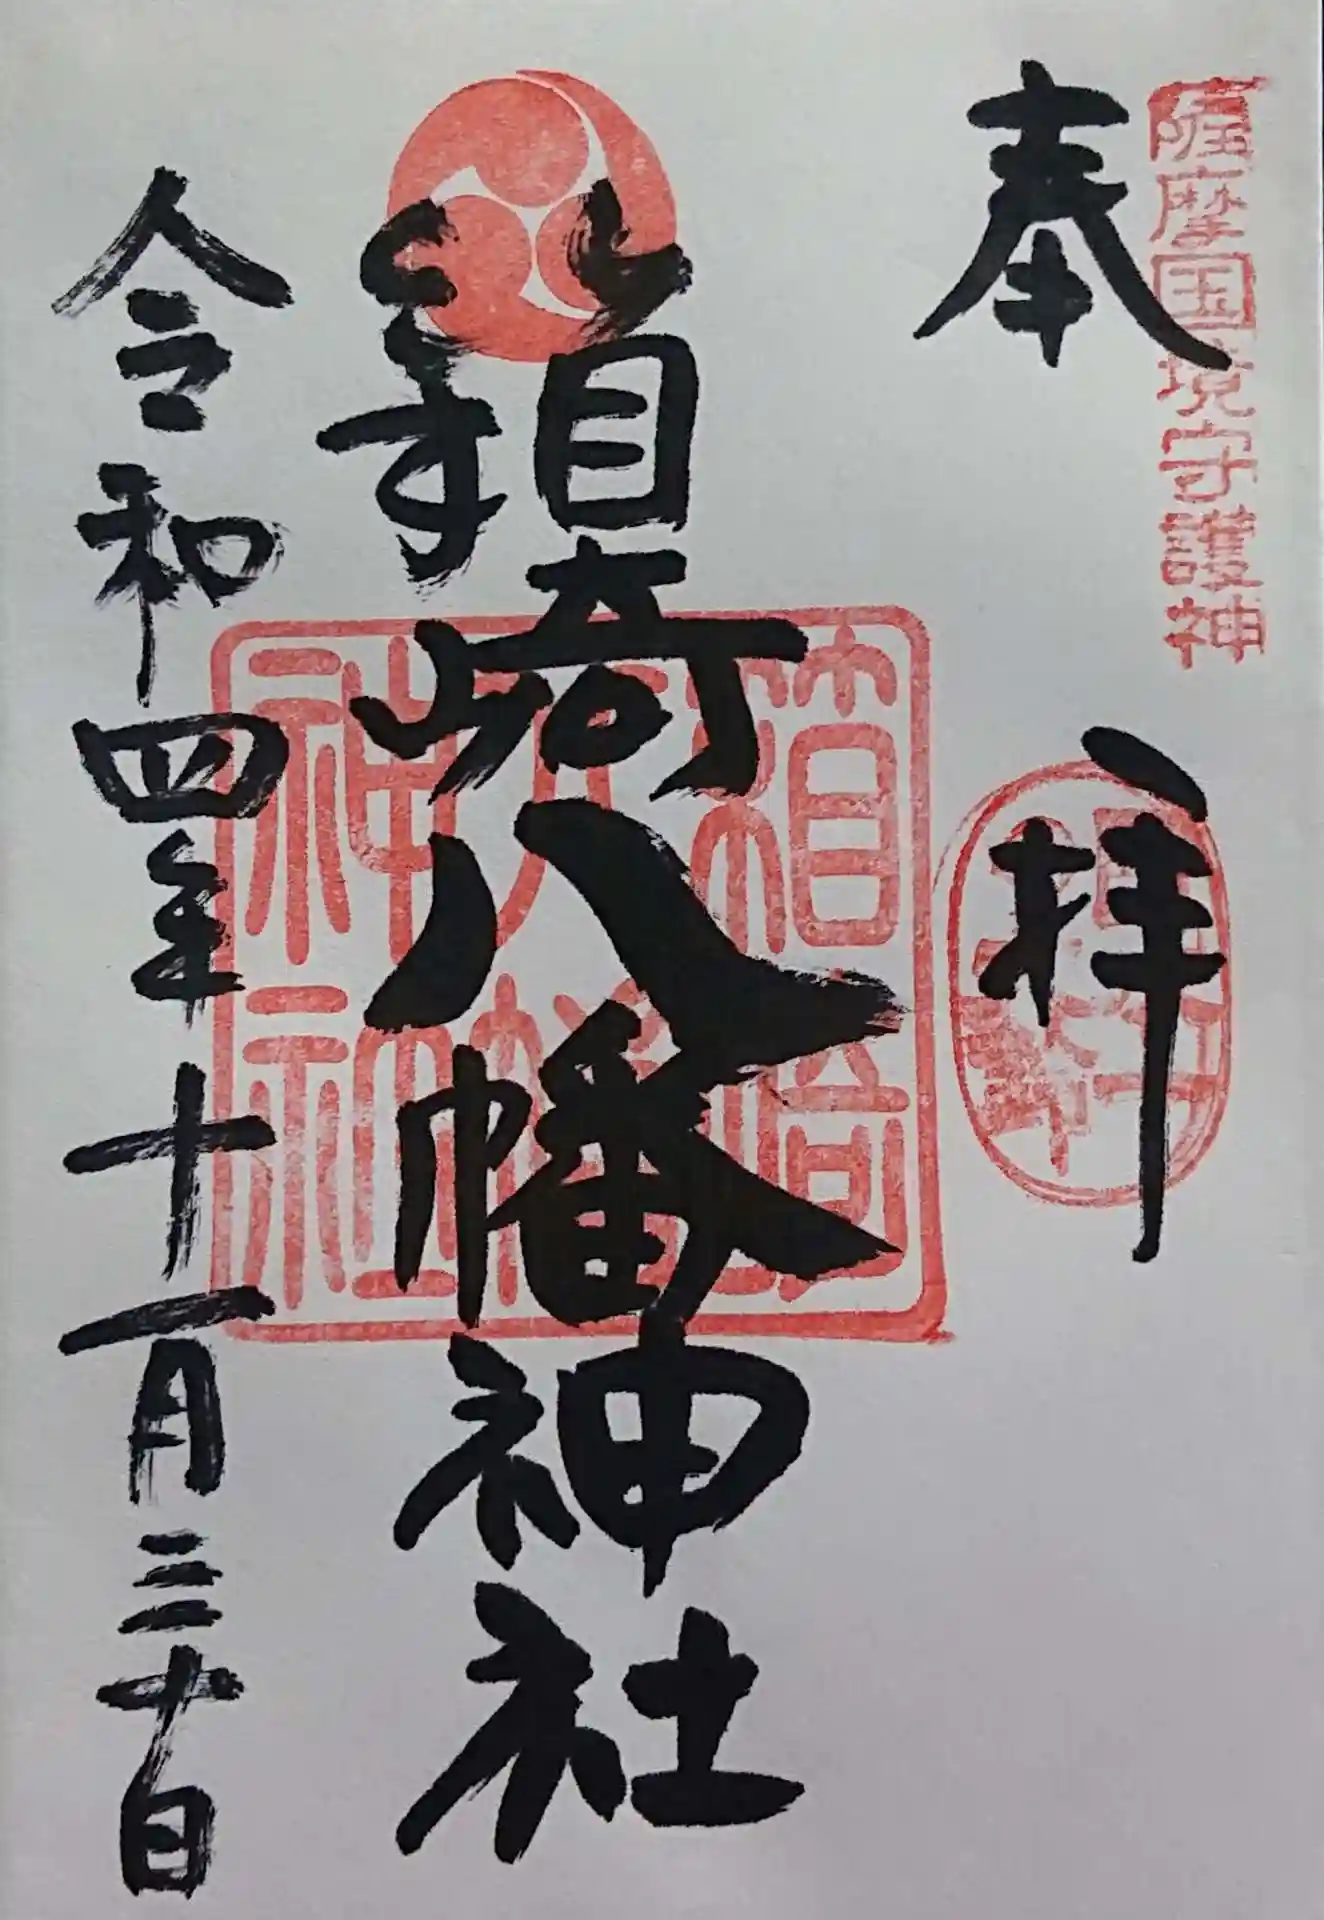 薩摩国境守護神
奉拝
箱崎八幡神社
箱崎
八幡
神社
令和四年十一月三十日